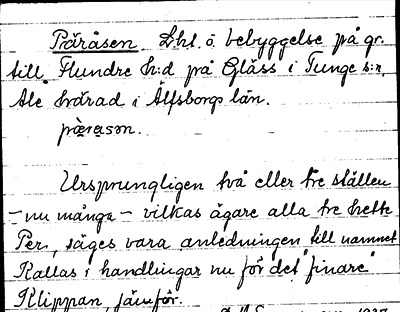 Präråsen. Lht. ö. bebyggelse på gr.
till Flundre h:d på Gläss i Tunge s:n,
Ale härad i Älfsborgs län.
pærasən.
Ursprungligen två eller tre ställen
– nu många – vilkas ägare alla tre hette
Per, säges vara anledningen till namnet
Kallas i handlingar nu för det "finare"
Klippan, jämför.